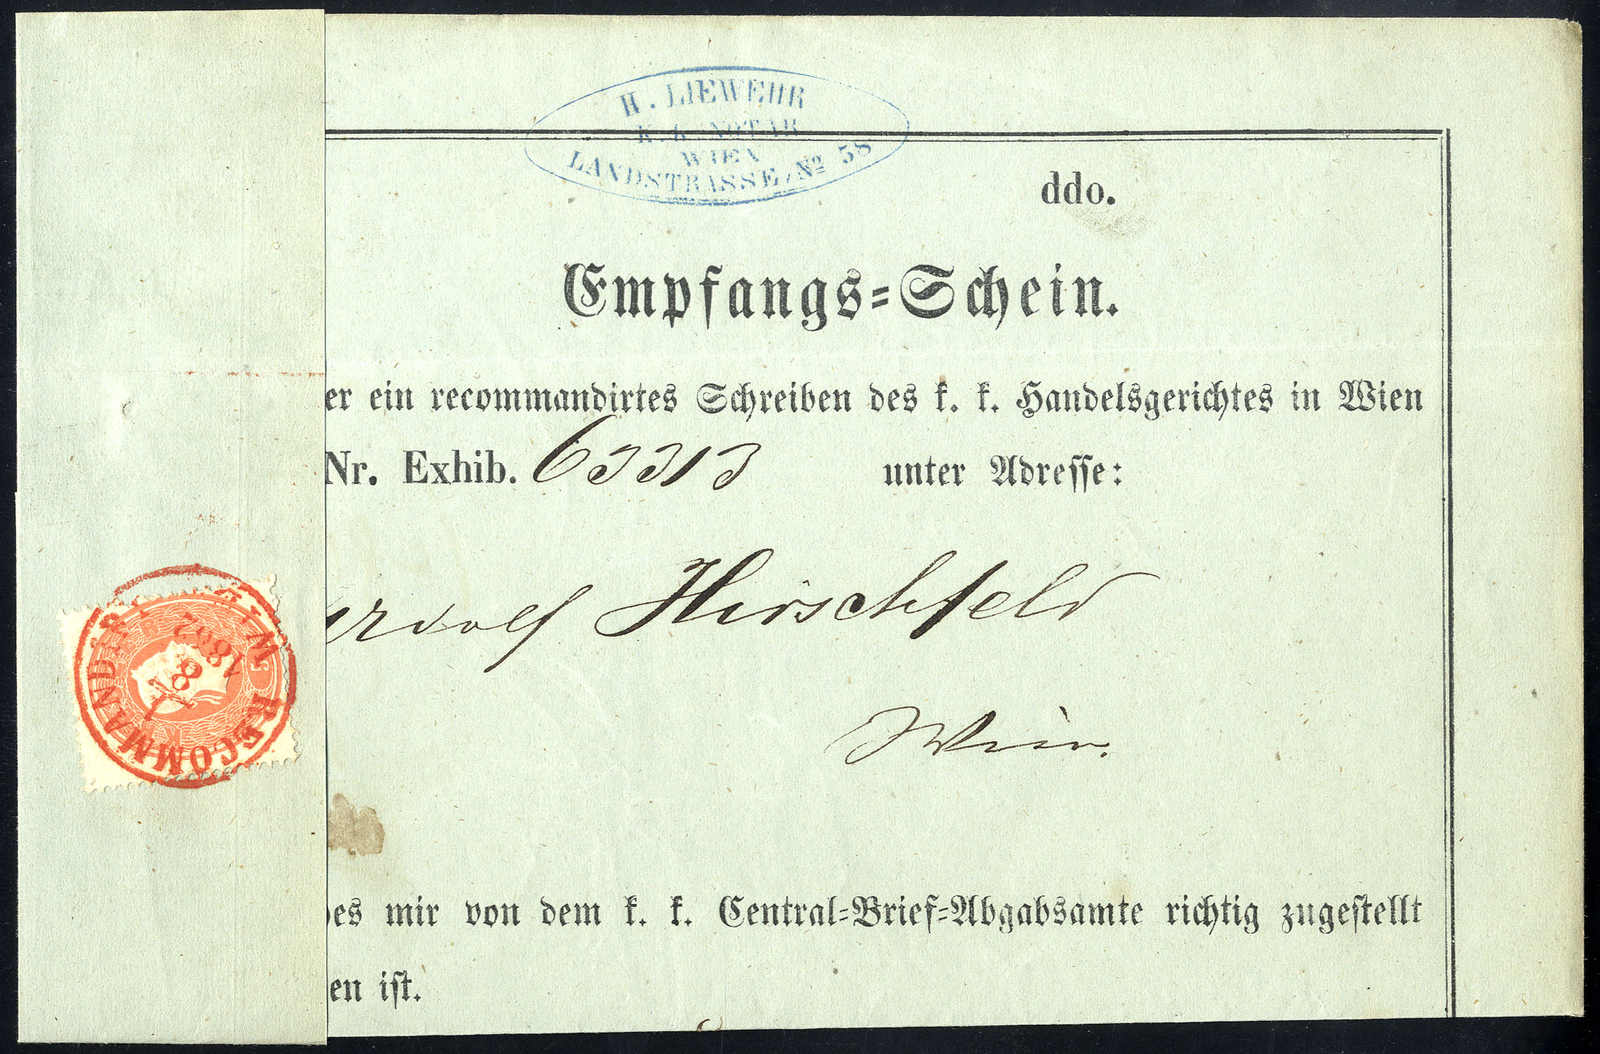 H. LIEWEHR
K. K. NOTAR
WIEN
LANDSTRASSE, Nº 58
ddo.
Empfangs-Schein.
er ein recommandirtes Schreiben des k. k. Handelsgerichtes in Wien
Nr. Exhib. 63313 unter Adresse:
Hirschfeld
Wien.
es mir von dem k. k. Central-Brief-Abgabsamte richtig zugestellt
en ist.
WIEN
RECOMMANDIRT
1862